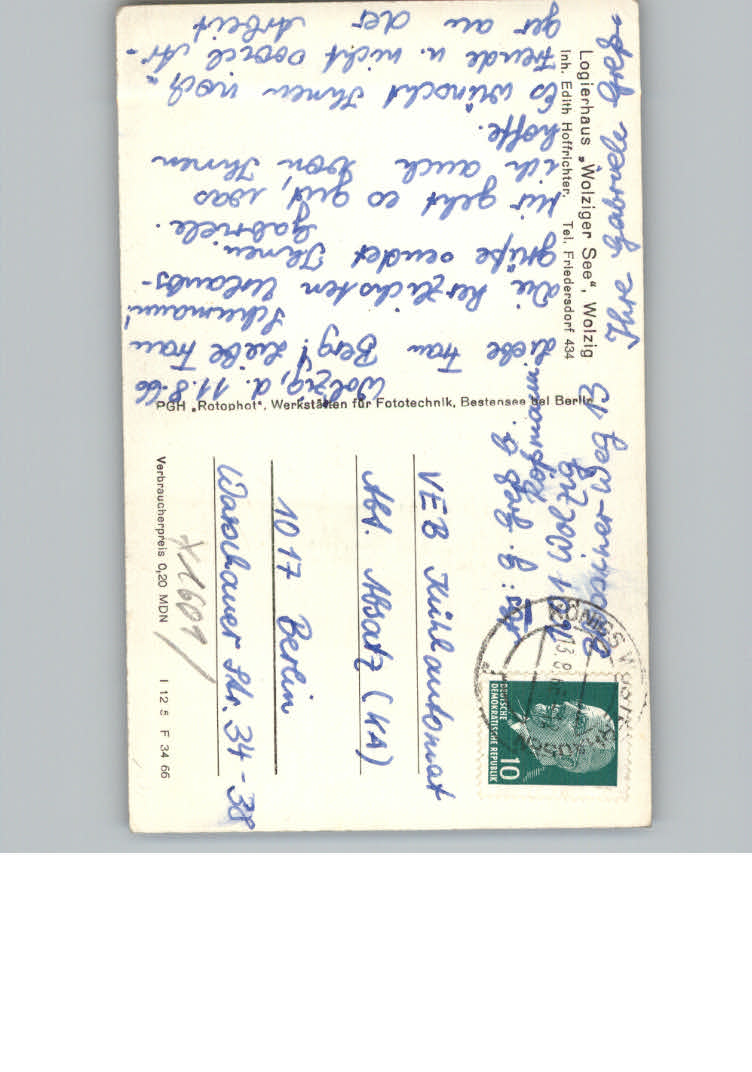 Logierhaus „Wolziger See“, Wolzig
Inh. Edith Hoffrichter. Tel. Friedersdorf 434
Wolzig, d. 11.8.66
Liebe Frau Berg! Liebe Frau
Schumann!
Die herzlichsten Urlaubs-
grüße sendet Ihnen
Gabriele.
Mir geht es gut, was
ich auch von Ihnen
hoffe.
Es wünscht Ihnen noch
Freude u. nicht soviel Är-
ger an der Arbeit
Ihre Gabriele
PGH „Rotophot“, Werkstätten für Fototechnik, Bestensee bei Berlin
Abs.: G.
Wolzig
DEUTSCHE
DEMOKRATISCHE REPUBLIK
10
KÖNIGS WUSTERHAUSEN
VEB Kühlautomat
Abt. Absatz (KA)
1017 Berlin
Warschauer Str. 34-38
X1601
Verbraucherpreis 0,20 MDN I 12 5 F 34 66